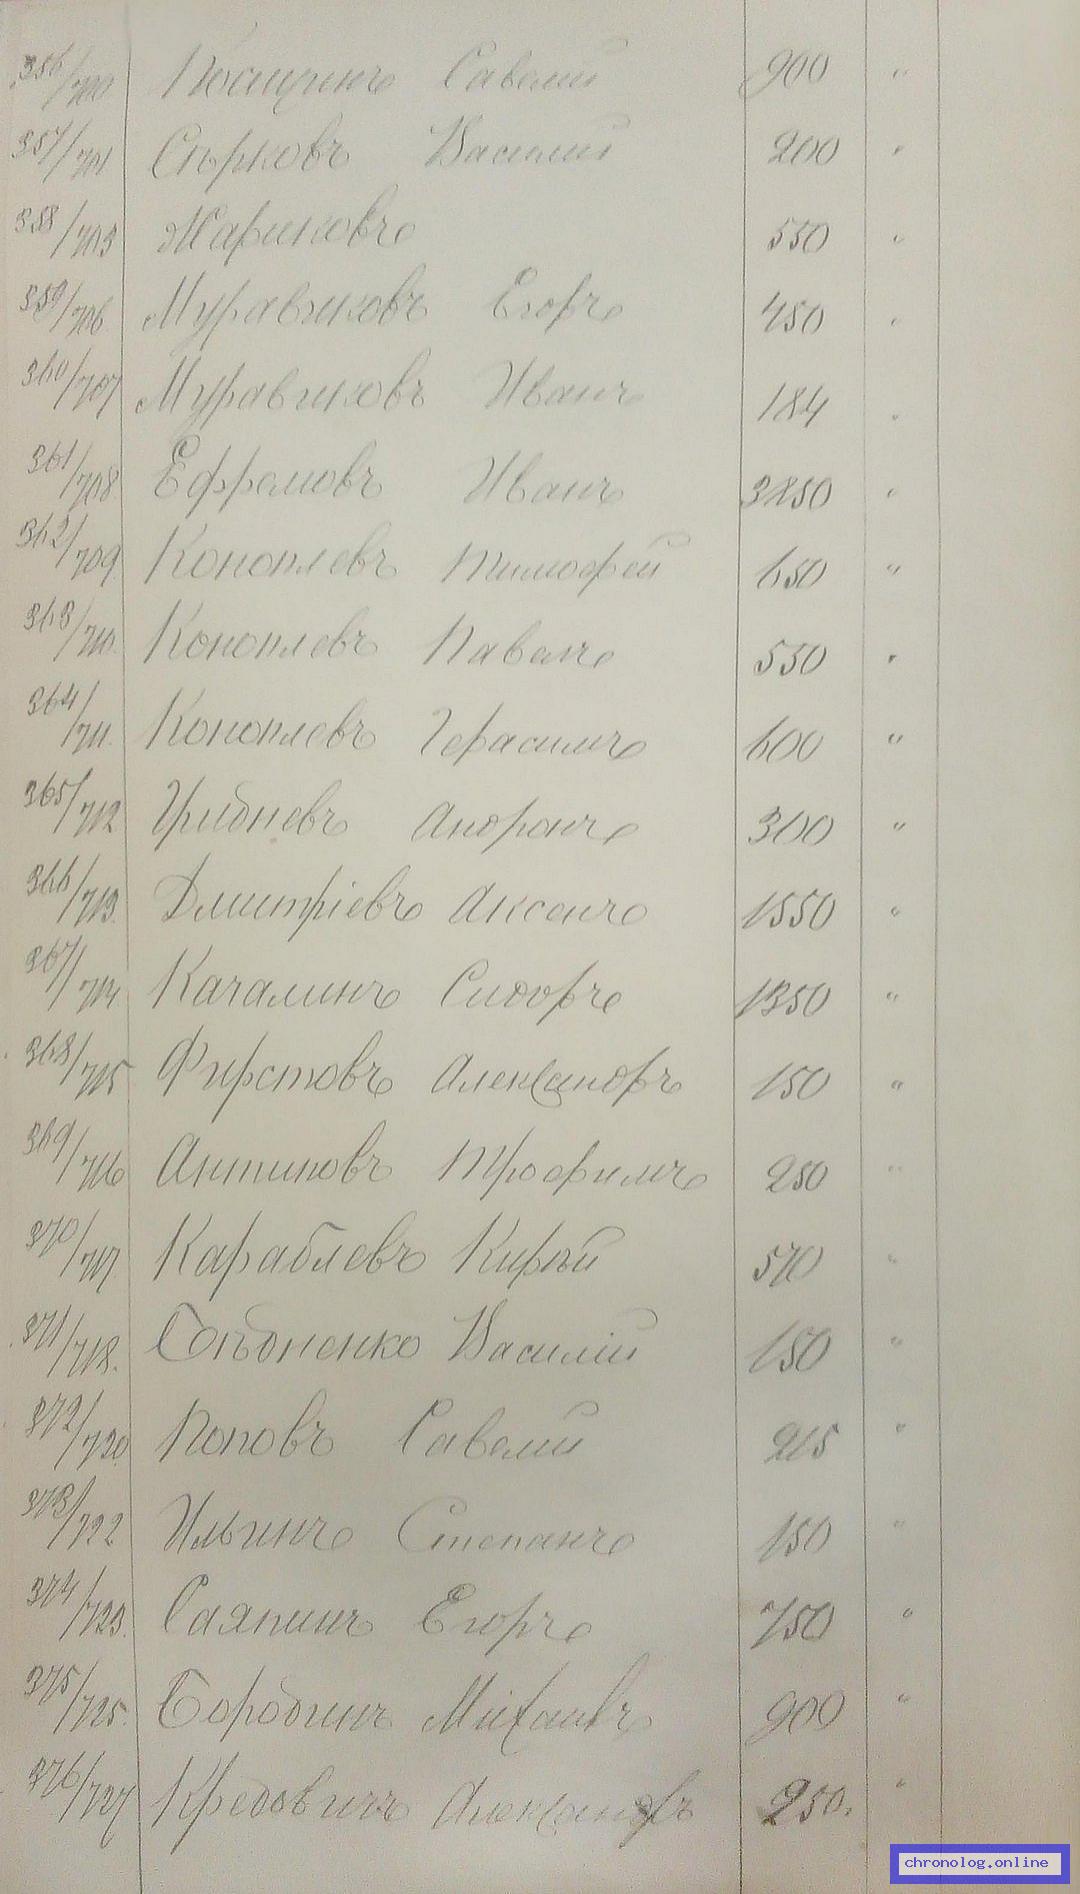 356/700 Савелий 900 "
357/701 Василий 200 "
358/703 Жариковъ 550 "
359/706 Муравьиковъ Егоръ 450 "
360/707 Муравьиковъ Иванъ 184 "
361/708 Ефремовъ Иванъ 3850 "
362/709 Коноплевъ Тимофей 650 "
363/710. Коноплевъ Павелъ 550 "
364/711. Коноплевъ Герасимъ 600 "
365/712 300 "
366/713. Дмитріевъ Аксенъ 1550 "
367/714. Качалинъ Сидоръ 1350 "
368/715 Фирстовъ Александръ 150 "
369/716 Антиповъ Трофимъ 250 "
370/717. Караблевъ Кирѣй 570 "
371/718. Василій 150 "
372/720. Поповъ Савелий 215 "
373/722 Ильинъ Степанъ 150 "
374/723. Саяпинъ Егоръ 750 "
375/725. Бородинъ Михаилъ 900 "
376/727 Александръ 250. "
chronolog.online